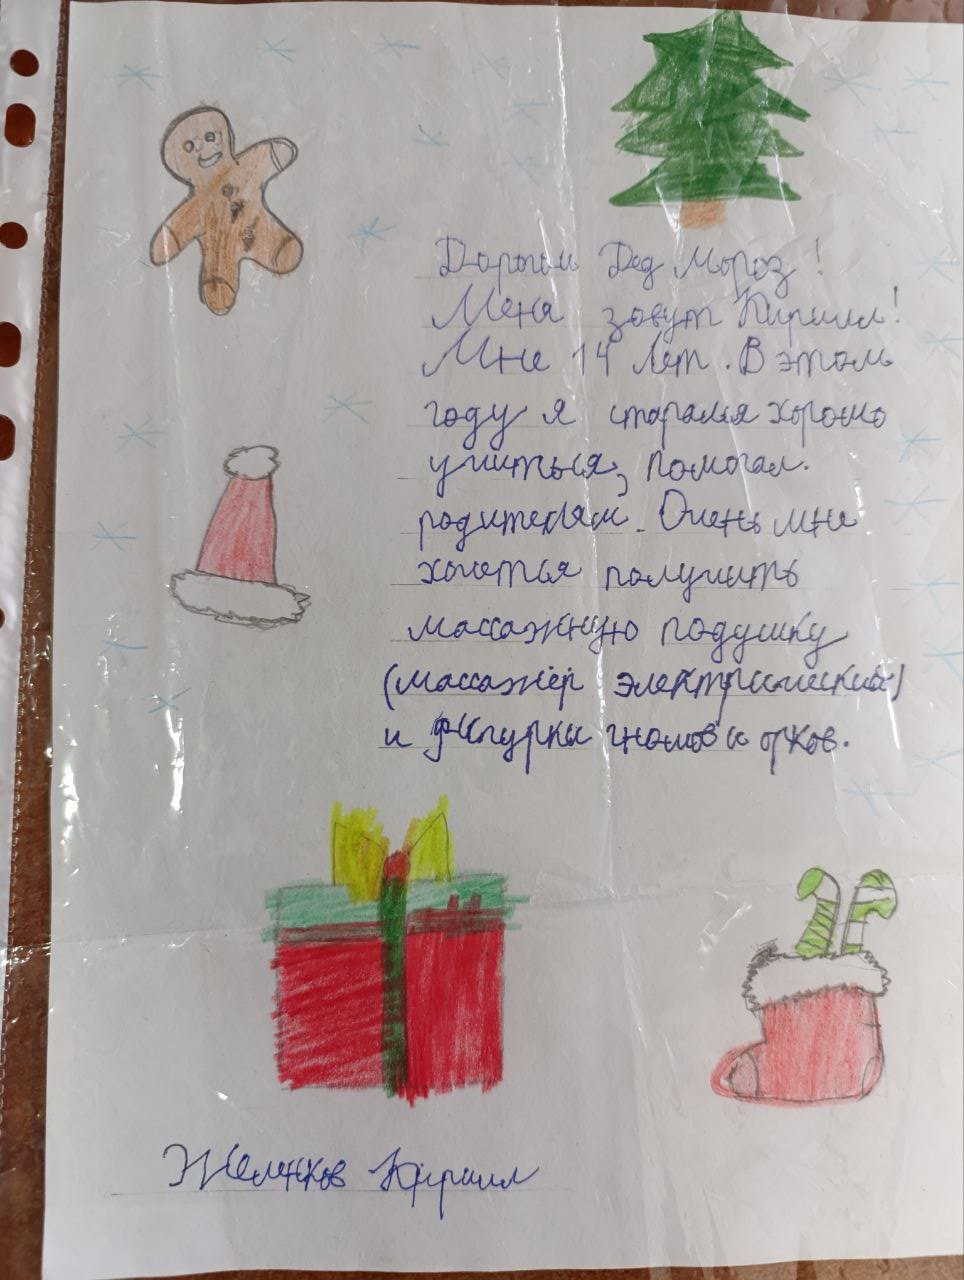 Дорогой Дед Мороз!
Меня зовут Кирилл!
Мне 14 лет. В этом
году я старался хорошо
учиться, помогал
родителям. Очень мне
хочется получить
массажную подушку
(массажёр электрический)
и фигурки гномов и орков.
Кирилл